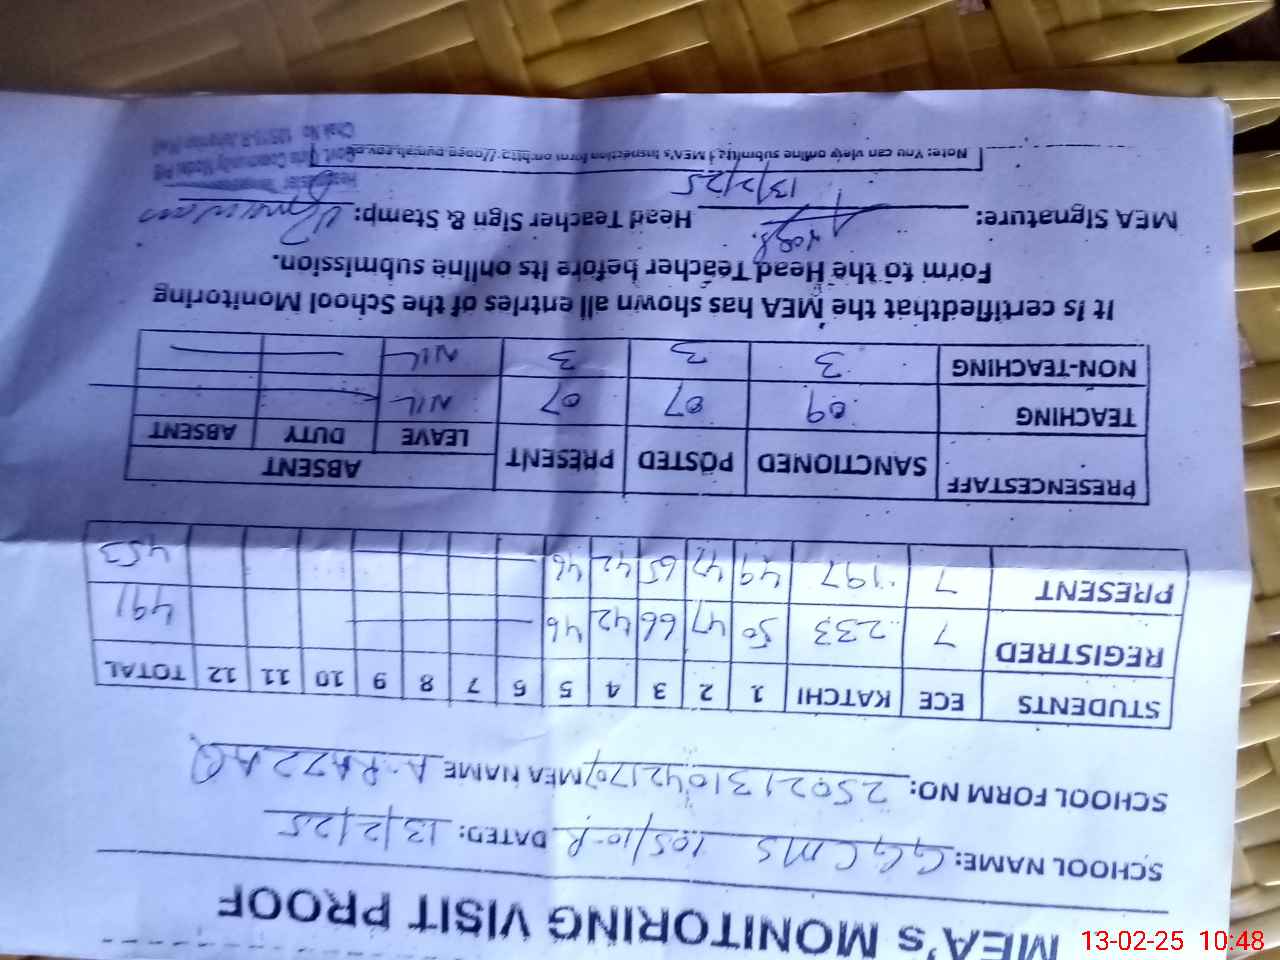 MEA's MONITORING VISIT PROOF
SCHOOL NAME: GGCMS 105/10-R DATED: 13/2/25
SCHOOL FORM NO: 25021310421707 MEA NAME A-RAZZAQ
STUDENTS ECE KATCHI 1 2 3 4 5 6 7 8 9 10 11 12 TOTAL
REGISTRED 7 233 50 47 66 42 46 491
PRESENT 7 197 49 47 65 42 46 453
PRESENCESTAFF SANCTIONED POSTED PRESENT ABSENT
LEAVE DUTY ABSENT
TEACHING 09 07 07 NIL
NON-TEACHING 3 3 3 NIL
It is certifiedthat the MEA has shown all entries of the School Monitoring
Form to the Head Teacher before its online submission.
MEA Signature: Head Teacher Sign & Stamp:
13/2/25
Note: You can view online submitted MEA's inspection form on
13-02-25 10:48